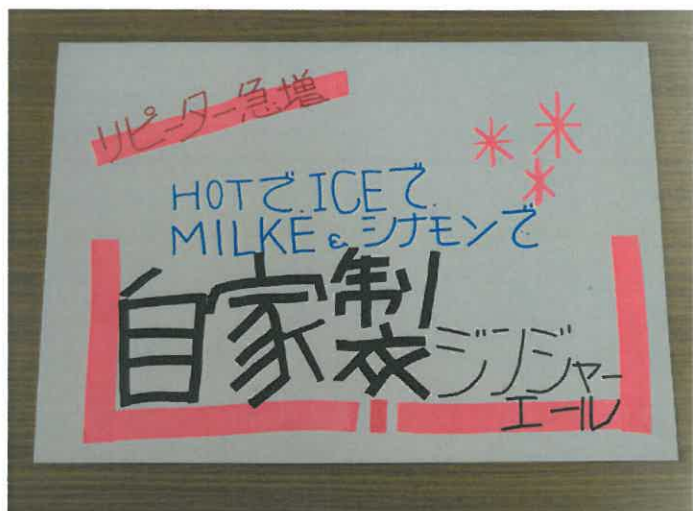 リピーター急増
HOTで.ICEで.
MILKE & シナモンで
自家製ジンジャー
エール